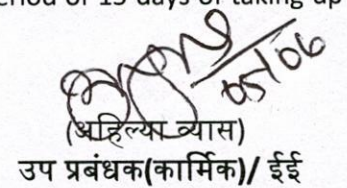 period of 15 days of taking up
05/06
(अहिल्या व्यास)
उप प्रबंधक(कार्मिक)/ ईई